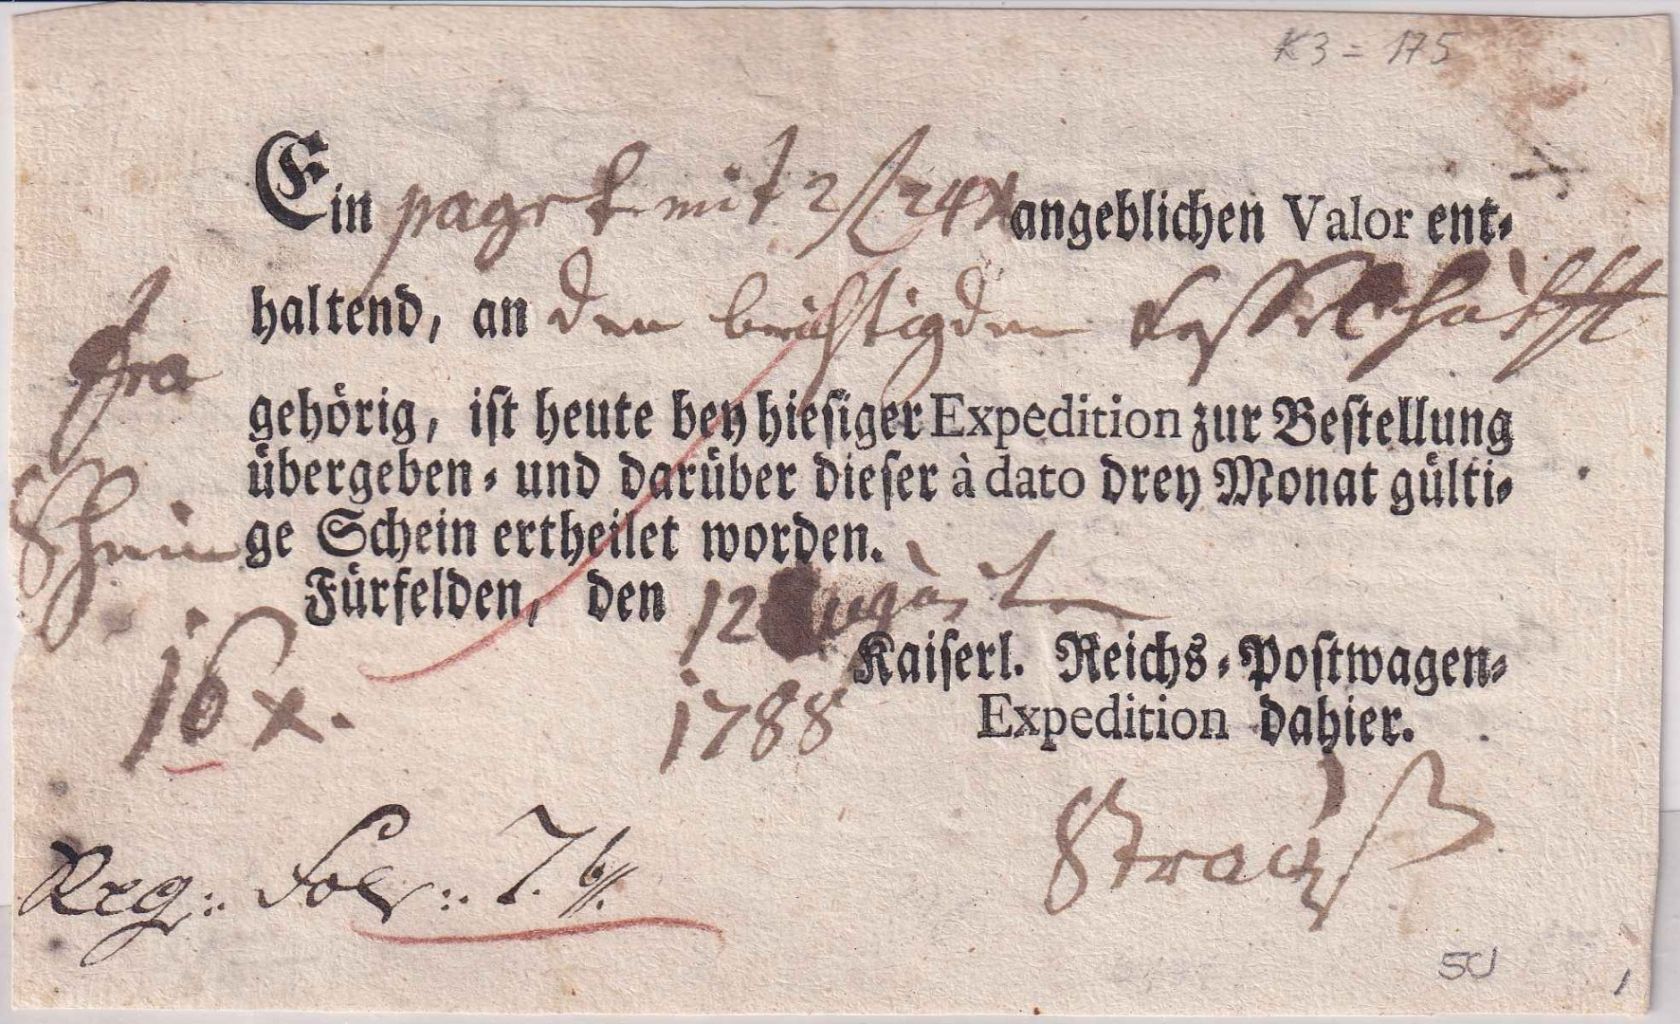 K3 = 175
Ein paget mit 2 fl 24 x angeblichen Valor ent-
haltend, an den
fra
gehörig, ist heute bey hiesiger Expedition zur Bestellung
übergeben - und darüber dieser à dato drey Monat gülti-
Schein ge Schein ertheilet worden.
Fürfelden, den 12
Kaiserl. Reichs-Postwagen-
16 x. 1788 Expedition dahier.
Strauß
Reg: Fol: 7. b
50
1